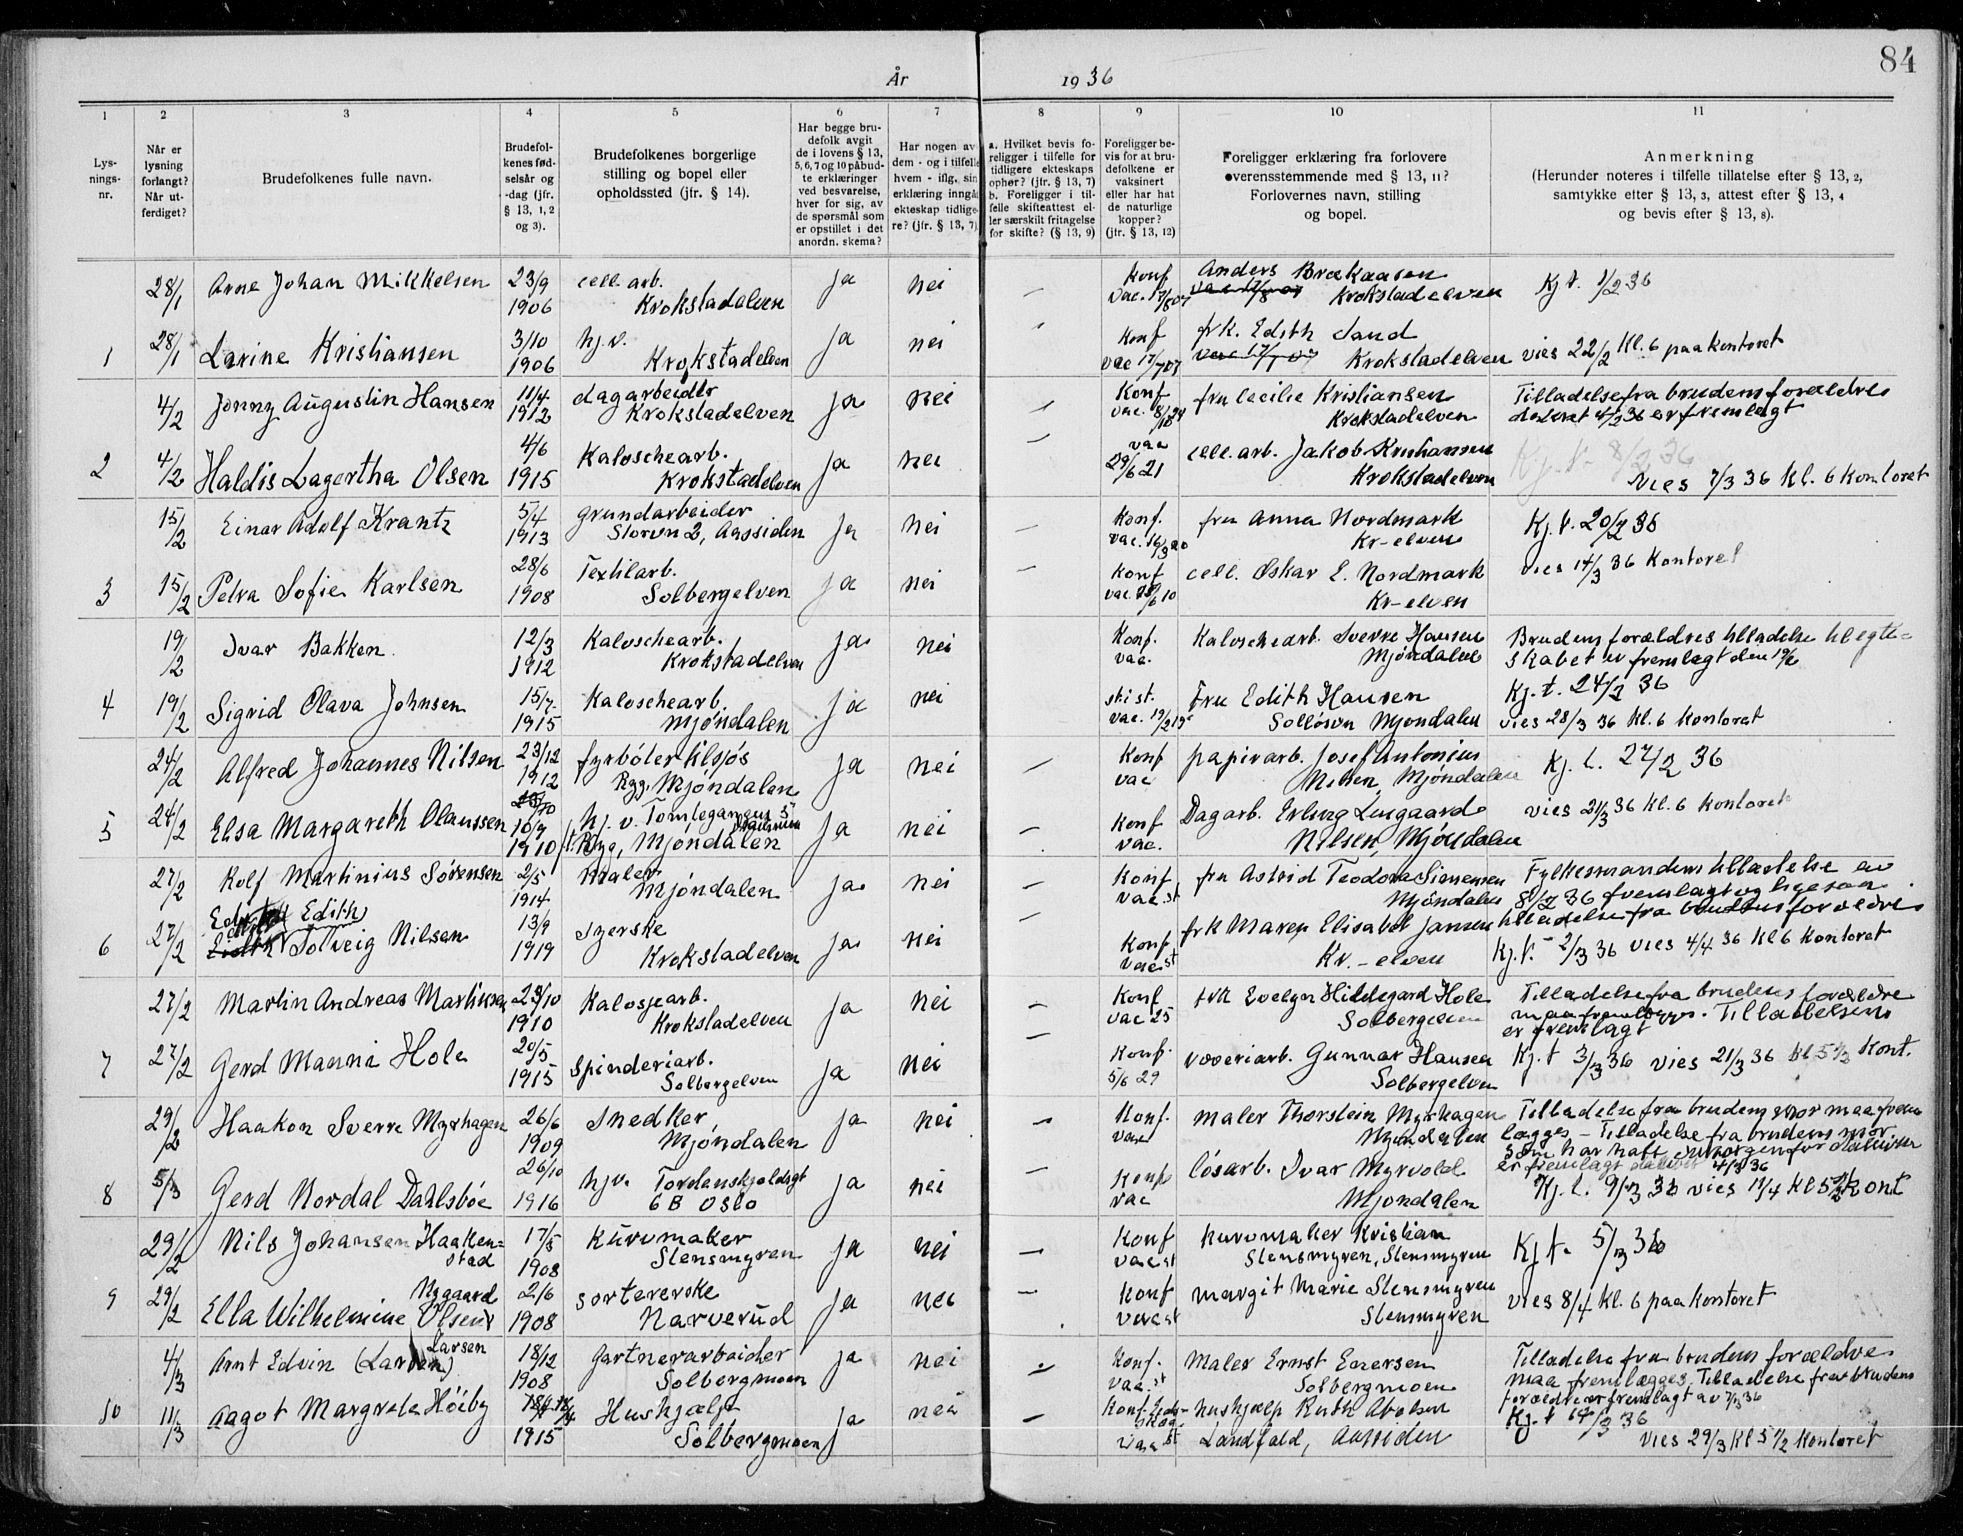 84
År 1936
1 2 3 4 5 6 7 8 9 10 11
Lys-
nings-
nr.
Når er
lysning
forlangt?
Når ut-
ferdiget?
Brudefolkenes fulle navn.
Brudefol-
kenes fød-
selsår og
-dag (jfr.
§ 13, 1, 2
og 3).
Brudefolkenes borgerlige
stilling og bopel eller
opholdssted (jfr. § 14).
Har begge bru-
defolk avgit
de i lovens § 13,
5, 6, 7 og 10 påbud-
te erklæringer
ved besvarelse,
hver for sig, av
de spørsmål som
er opstillet i det
anordn. skema?
Har nogen av
dem - og i tilfelle
hvem - iflg. sin
erklæring inngåt
ekteskap tidlige-
re? (jfr. § 13, 7)
a. Hvilket bevis fo-
religger i tilfelle for
tidligere ekteskaps
ophør? (jfr. § 13, 7)
b. Foreligger i til-
felle skifteattest el-
ler særskilt fritagelse
for skifte? (§ 13, 9)
Foreligger be-
vis for at bru-
defolkene er
vaksinert
eller har hat
de naturlige
kopper?
(jfr. § 13, 12)
Foreligger erklæring fra forlovere
overensstemmende med § 13, 11?
Forlovernes navn, stilling
og bopel.
Anmerkning
(Herunder noteres i tilfelle tillatelse efter § 13, 2,
samtykke efter § 13, 3, attest efter § 13, 4
og bevis efter § 13, 8).
28/1 Arne Johan Mikkelsen 23/9 1906 cell. arb. Krokstadelven ja nei — Konf vac. 17/8 07 Anders Brækaasen Krokstadelven Kj. t. 1/2 36
1 28/1 Larine Kristiansen 3/10 1906 hj.v. Krokstadelven ja nei — Konf vac 17/7 07 frk. Edith Sand Krokstadelven vies 22/2 Kl. 6 paa kontoret
4/2 Jonny Augustin Hansen 11/4 1912 dagarbeider Krokstadelven ja nei — Konf vac. 8/10 24 fru Cecilie Kristiansen Krokstadelven Tilladelse fra brudens forældre
dateret 4/2 36 er fremlagt
2 4/2 Haldis Lagertha Olsen 4/6 1915 Kaloschearb. Krokstadelven ja nei — vac 29/6 21 cell. arb. Jakob Kristiansen Krokstadelven Kj. t. 8/2 36
vies 7/3 36 kl. 6 Kontoret
15/2 Einar Adolf Krantz 5/4 1913 grundarbeider Storvn 2, Aassiden ja nei — Konf. vac. 16/3 20 fru Anna Nordmark Kr-elven Kj. t. 20/2 36
3 15/2 Petra Sofie Karlsen 28/6 1908 Textilarb. Solbergelven ja nei — Konf vac. 6 10 cell. Oskar E. Nordmark Kr-elven vies 14/3 36 Kontoret
19/2 Ivar Bakken 12/3 1912 Kaloschearb. Krokstadelven ja nei Konf. vac. Kaloschearb. Sverre Hansen Mjøndalen Brudens forældres tilladelse til egte=
skabet er fremlagt den 19/2
4 19/2 Sigrid Olava Johnsen 15/7 1915 Kaloschearb. Mjøndalen ja nei vac. 19/2 15 Fru Edith Hansen Mjøndalen Kj. t. 24/2 36
vies 28/3 36 kl. 6 kontoret
24/2 Alfred Johannes Nilsen 23/12 1912 fyrbøter tilsjøs Rygg, Mjøndalen ja nei — Konf vac papirarb. Josef Antonius Nilsen, Mjøndalen Kj. t. 27/2 36
5 24/2 Elsa Margareth Olaussen 10/7 1910 hj. v. Tomtegangen 5 Drammen f.t. Rygg, Mjøndalen ja nei Konf vac. Dagarb. Erling Lingaard Nilsen, Mjøndalen vies 21/3 36 kl. 6 kontoret
27/2 Rolf Martinius Sørensen 2/5 1914 maler Mjøndalen ja nei — Konf vac. st fru Astrid Teodora Simensen Mjøndalen Fylkesmandens tilladelse av
8/2 36 fremlagt og ligesaa
6 27/2 Edith Solveig Nilsen 13/9 1919 Syerske Krokstadelven ja nei — Konf vac. st frk Maren Elisabet Jansen Kr.-elven tilladelse fra brudens forældre
Kj. t. 2/3 36 vies 4/4 36 kl 6 kontoret
27/2 Martin Andreas Martinsen 23/10 1910 Kalosjearb. Krokstadelven ja nei — Konf vac 25 frk Evelyn Hildegard Hole Solbergelven Tilladelse fra brudens forældre
maa fremlægges. Tilladelsen
er fremlagt
7 27/2 Gerd Manni Hole 20/5 1915 Spinderiarb. Solbergelven ja nei — Konf. 5/6 29 væveriarb. Gunnar Hansen Solbergelven Kj. t 3/3 36 vies 21/3 36 kl 5 1/2 Kont.
29/2 Haakon Sverre Myrhagen 26/6 1909 Snedker, Mjøndalen ja nei — Konf. vac maler Thorstein Myrhagen Mjøndalen Tilladelse fra brudens mor maa frem
lægges – Tilladelse fra brudens mor
som har haft omsorgen for datteren
er fremlagt dateret 4/3 36
8 5/3 Gerd Nordal Dahlsbøe 26/10 1916 hjv. Tordenskjoldsgt 6 B Oslo ja nei — Konf vac løsarb. Ivar Myrvold Mjøndalen Kj. t. 9/3 36 vies 11/4 kl 5 1/2 Kont
29/2 Nils Johansen Haaken=
stad 17/5 1908 Kurvmaker Stensmyren ja nei — Konf vac st Kurvmaker Kristian Stensmyren, Stensmyren Kj t. 5/3 36
9 29/2 Ella Wilhelmine Nygaard Olsen 2/6 1908 Sortererske Narverud ja nei — Konf vac st Margit Marie Stensmyren Stensmyren vies 8/4 kl. 6 paa kontoret
4/3 Arnt Edvin (Larsen) Larsen 18/12 1908 Gartnerarbeider Solbergmoen ja nei — Konf. vac. st Maler Ernst Enersen Solbergmoen Tilladelse fra brudens forældre
maa fremlægges. Tilladelse fra brudens
forældre er fremlagt av 7/3 36
10 11/3 Aagot Margrete Høiby 1915 Huskjælp Solbergmoen ja nei — Konf. vac st huskjælp Ruth Abelsen Landfald, Aassiden Kj. t 14/3 36
vies 29/3 kl 5 1/2 kontoret